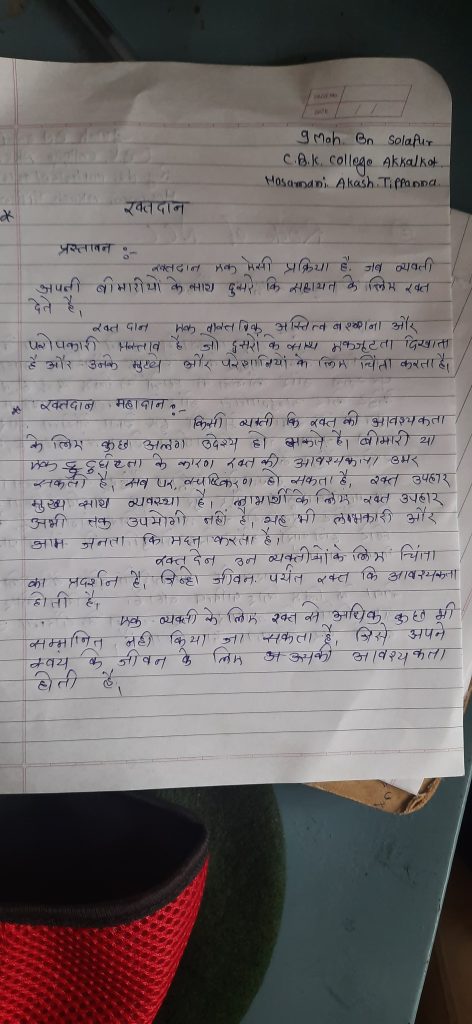 9 Mah Bn Solapur
C.B.K. College Akkalkot.
Hosamani Akash Tippanna.
* रक्तदान
प्रस्तावन :-
रक्तदान एक ऐसी प्रक्रिया है. जब व्यक्ती
अपनी बीमारीयों के साथ दुसरे कि सहायत के लिए रक्त
देते है,
रक्त दान एक वास्तविक अस्तित्व और
परोपकारी प्रस्ताव है जो दुसरों के साथ एकजूटता दिखाता
है और उनके और परेशानियों के लिए चिंता करता है,
* रक्तदान महादान :-
किसी व्यक्ती कि रक्त की आवश्यकता
के लिए कुछ अलग उदेश्य हो सकते है, बीमारी या
एक दुर्घटता के कारण रक्त की आवश्यकता उभर
सकती है, सब पर हो सकता है, रक्त उपहार
मुख्य साथ व्यवस्था है, लाभार्थी के लिए रक्त उपहार
अभी तक उपयोगी नहीं है, यह भी लाभकारी और
आम जनता कि मदत करता है,
रक्त देन उन व्यक्तीयों के लिए चिंता
का प्रदर्शन है, जिन्हे जीवन पर्यंत रक्त कि आवश्यकता
होती है,
एक व्यक्ती के लिए रक्त से अधिक कुछ भी
सम्मानित नही किया जा सकता है, जिसे अपने
स्वयं कि जीवन के लिए उसकी आवश्यकता
होती है,